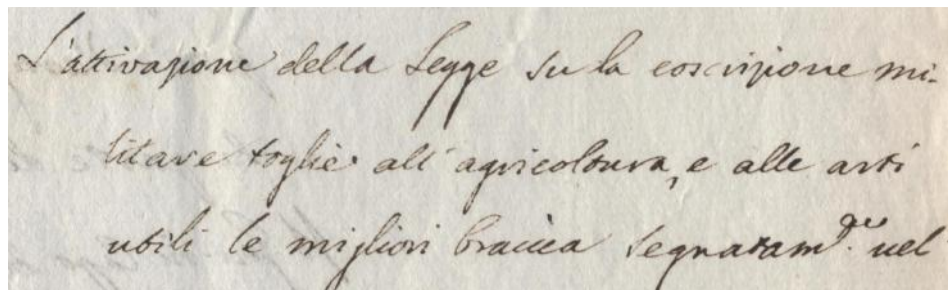 L'attivazione della Legge su la coscrizione mi-
litare toglie all'agricoltura, e alle arti
utili le migliori braccia segnatam.te nel